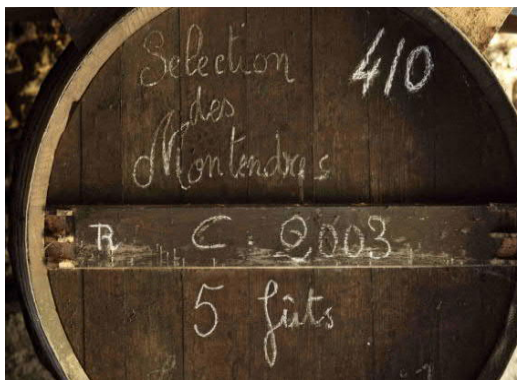 Selection 410
des
Montendres
R C 2003
5 fûts